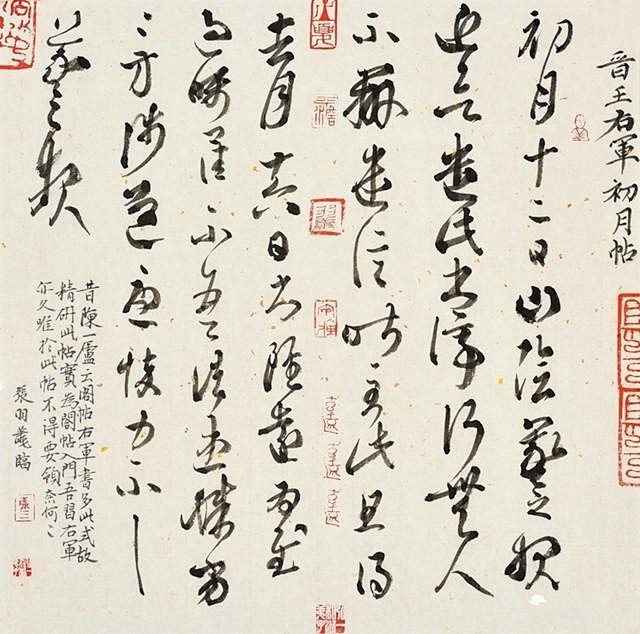 晉王右軍初月帖
初月十二日山陰羲之報
近欲遣此書停行無人
不辦遣信昨至此且得
去月十六日書雖遠為慰
過囑卿佳不吾諸患殊劣
〻方涉道憂悴力不
羲之報
昔陳一廬云閣帖右軍書多此式故
精研此帖實為閣帖入門吾習右軍
亦久唯於此帖不得要領奈何〻
張羽臨